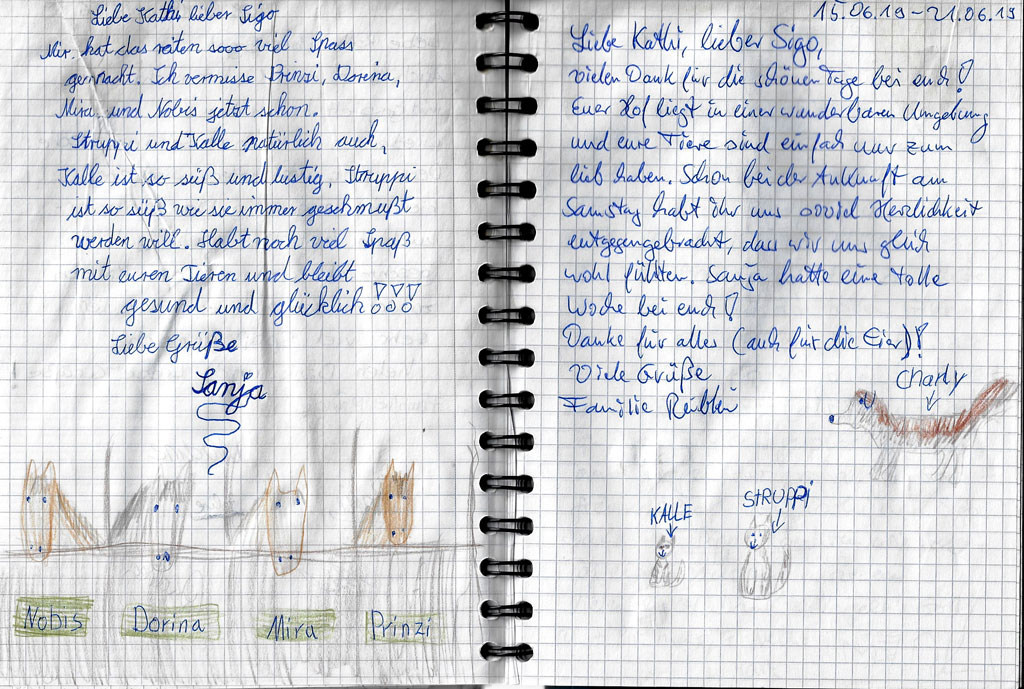 Liebe Kathi lieber Sigo
Mir hat das reiten sooo viel Spass
gemacht. Ich vermisse Prinzi, Dorina,
Mira und Nobis jetzt schon.
Struppi und Kalle natürlich auch,
Kalle ist so süß und lustig, Struppi
ist so süß wie sie immer geschmußt
werden will. Habt noch viel Spaß
mit euren Tieren und bleibt
gesund und glücklich!!!
Liebe Grüße
Sanja
Nobis
Dorina
Mira
Prinzi
15.06.19 - 21.06.19
Liebe Kathi, lieber Sigo,
vielen Dank für die schönen Tage bei euch!
Euer Hof liegt in einer wunderbaren Umgebung
und eure Tiere sind einfach nur zum
lieb haben. Schon bei der Ankunft am
Samstag habt ihr uns soviel Herzlichkeit
entgegengebracht, dass wir uns gleich
wohl fühlten. Sanja hatte eine tolle
Woche bei euch!
Danke für alles (auch für die Eier)!
Viele Grüße
Familie
Charly
KALLE
STRUPPI